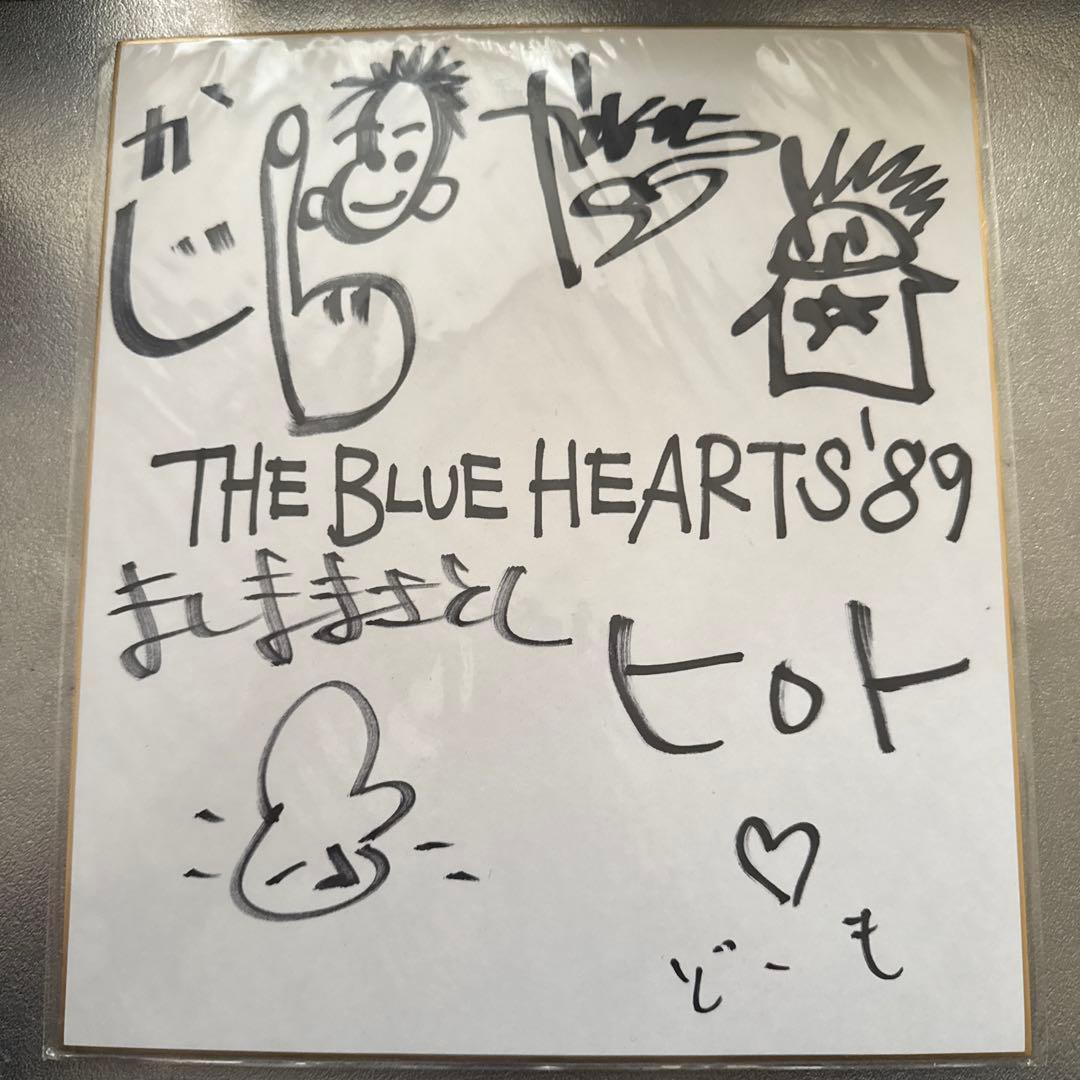 かじ
THE BLUE HEARTS '89
ましままさとし
ヒロト
どーも